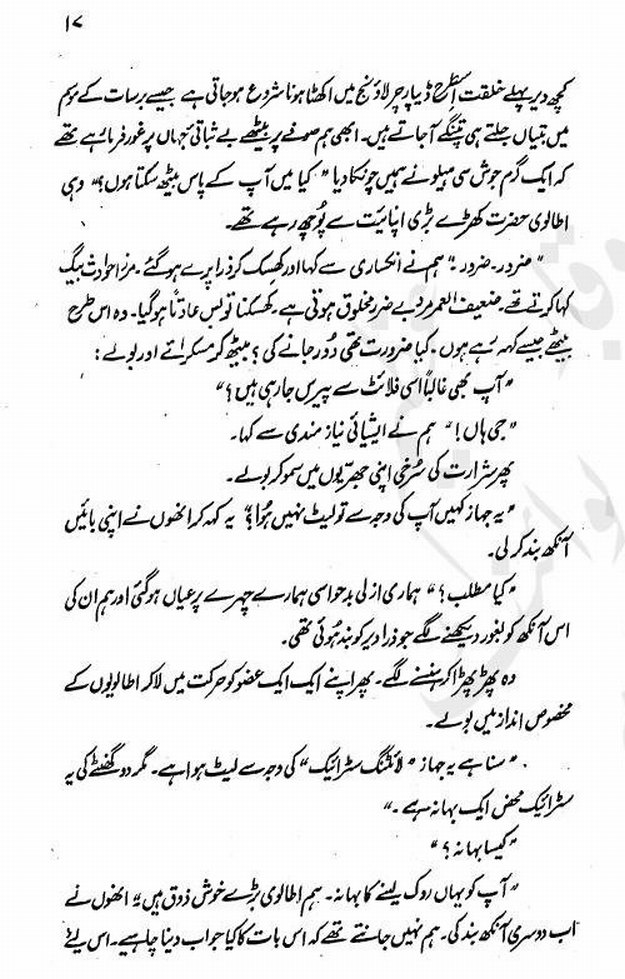 ۱۷
کچھ دیر پہلے خلقت اِسطرح ڈیپارچر لاؤنج میں اکھٹا ہونا شروع ہو جاتی ہے جیسے برسات کے موسم
میں بتیاں جلتے ہی پتنگے آ جاتے ہیں۔ ابھی ہم صوفے پر بیٹھے بے ثباتیٔ جہاں پر غور فرما رہے تھے
کہ ایک گرم جوش سی ہیلو نے ہمیں چونکا دیا "کیا میں آپ کے پاس بیٹھ سکتا ہوں؟" وہی
اطالوی حضرت کھڑے بڑی اپنائیت سے پُوچھ رہے تھے۔
"ضرور۔ ضرور۔" ہم نے انکساری سے کہا اور کھسک کر ذرا پرے ہو گئے۔ مرزا حوادث بیگ
کہا کرتے تھے۔ ضعیف العمر مرد بے ضرر مخلوق ہوتی ہے۔ کھسکنا تو بس عادتاً ہو گیا۔ وہ اس طرح
بیٹھے جیسے کہہ رہے ہوں۔ کیا ضرورت تھی دُور جانے کی؟ بیٹھ کر مسکرائے اور بولے:
"آپ بھی غالباً اسی فلائٹ سے پیرس جا رہی ہیں؟"
"جی ہاں!" ہم نے ایشیائی نیاز مندی سے کہا۔
پھر شرارت کی سُرخی اپنی جھریوں میں سمو کر بولے۔
"یہ جہاز کہیں آپ کی وجہ سے تو لیٹ نہیں ہُوا؟" یہ کہہ کر انھوں نے اپنی بائیں
آنکھ بند کر لی۔
"کیا مطلب؟" ہماری ازلی بدحواسی ہمارے چہرے پر عیاں ہو گئی اور ہم ان کی
اس آنکھ کو بغور دیکھنے لگے جو ذرا دیر کو بند ہُوئی تھی۔
وہ پھڑ پھڑا کر ہنسنے لگے۔ پھر اپنے ایک ایک عضو کو حرکت میں لا کر اطالویوں کے
مخصوص انداز میں بولے۔
"سنا ہے یہ جہاز "لائٹنگ سٹرائیک" کی وجہ سے لیٹ ہوا ہے۔ مگر دو گھنٹے کی یہ
سٹرائیک محض ایک بہانہ ہے۔"
"کیسا بہانہ؟"
"آپ کو یہاں روک لینے کا بہانہ۔ ہم اطالوی بڑے خوش ذوق ہیں۔" انھوں نے
اب دوسری آنکھ بند کی۔ ہم نہیں جانتے تھے کہ اس بات کا کیا جواب دینا چاہیے۔ اس لیٔے